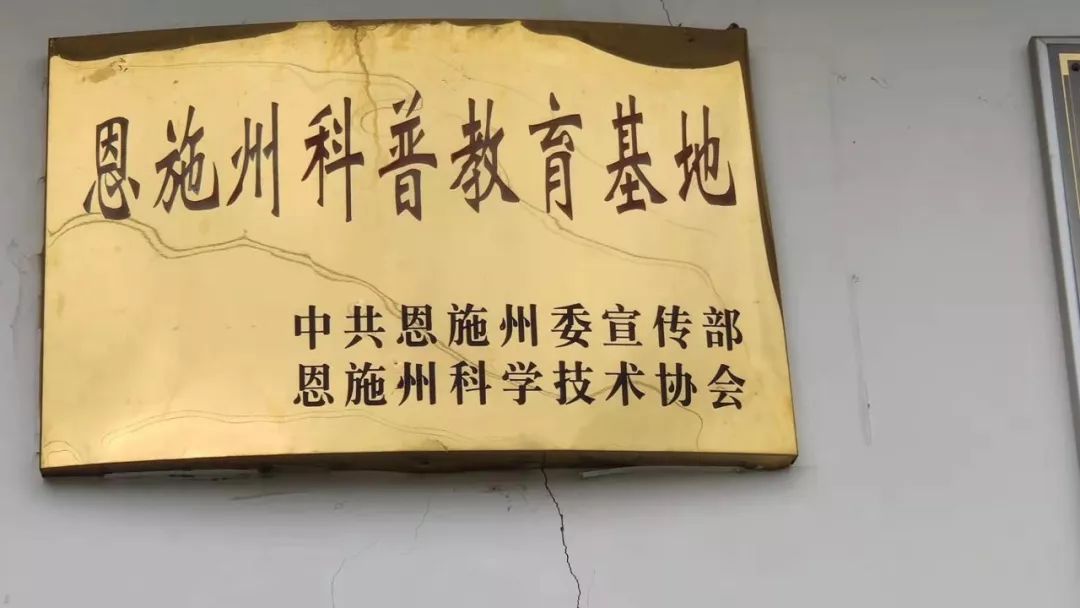 恩施州科普教育基地
中共恩施州委宣传部
恩施州科学技术协会